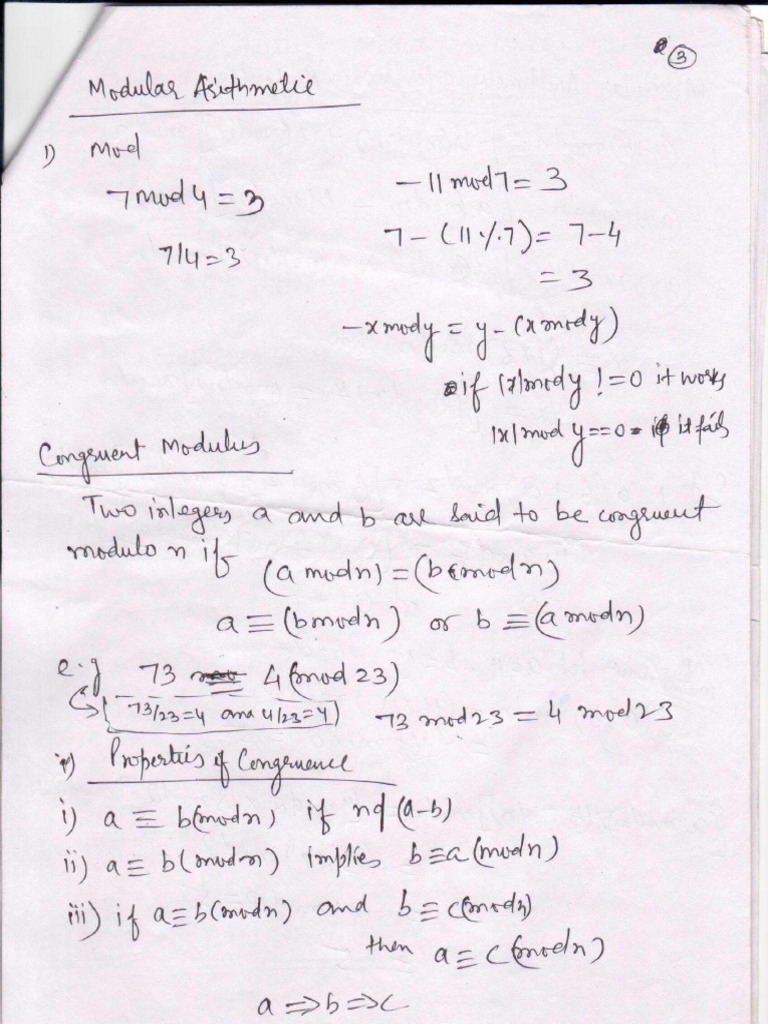 3
Modular Arithmetic
1) Mod
7 mod 4 = 3
7/4 = 3
-11 mod 7 = 3
7 - (11 % 7) = 7 - 4
= 3
-x mod y = y - (x mod y)
if |x| mod y != 0 it works
|x| mod y == 0 it fails
Congruent Modulus
Two integers a and b are said to be congruent
modulo n if
(a mod n) = (b mod n)
a ≡ (b mod n) or b ≡ (a mod n)
e.g 73 ≡ 4 (mod 23)
73/23=4 and 4/23=4
73 mod 23 = 4 mod 23
Properties of Congruence
i) a ≡ b (mod n) if n | (a-b)
ii) a ≡ b (mod n) implies b ≡ a (mod n)
iii) if a ≡ b (mod n) and b ≡ c (mod n)
then a ≡ c (mod n)
a ⇒ b ⇒ c